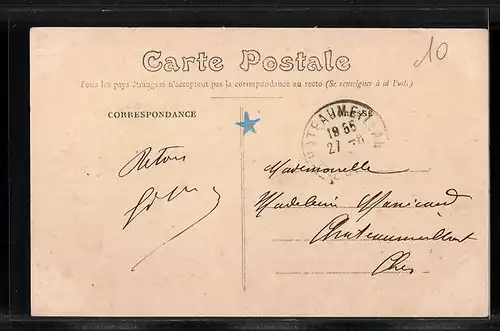 10
Carte Postale
Tous les pays étrangers n'acceptent pas la correspondance au recto (Se renseigner à la Poste)
CORRESPONDANCE
CHATEAUMEILLANT
19 55
27
Mademoiselle
Madeleine
Châteaumeillant
Cher